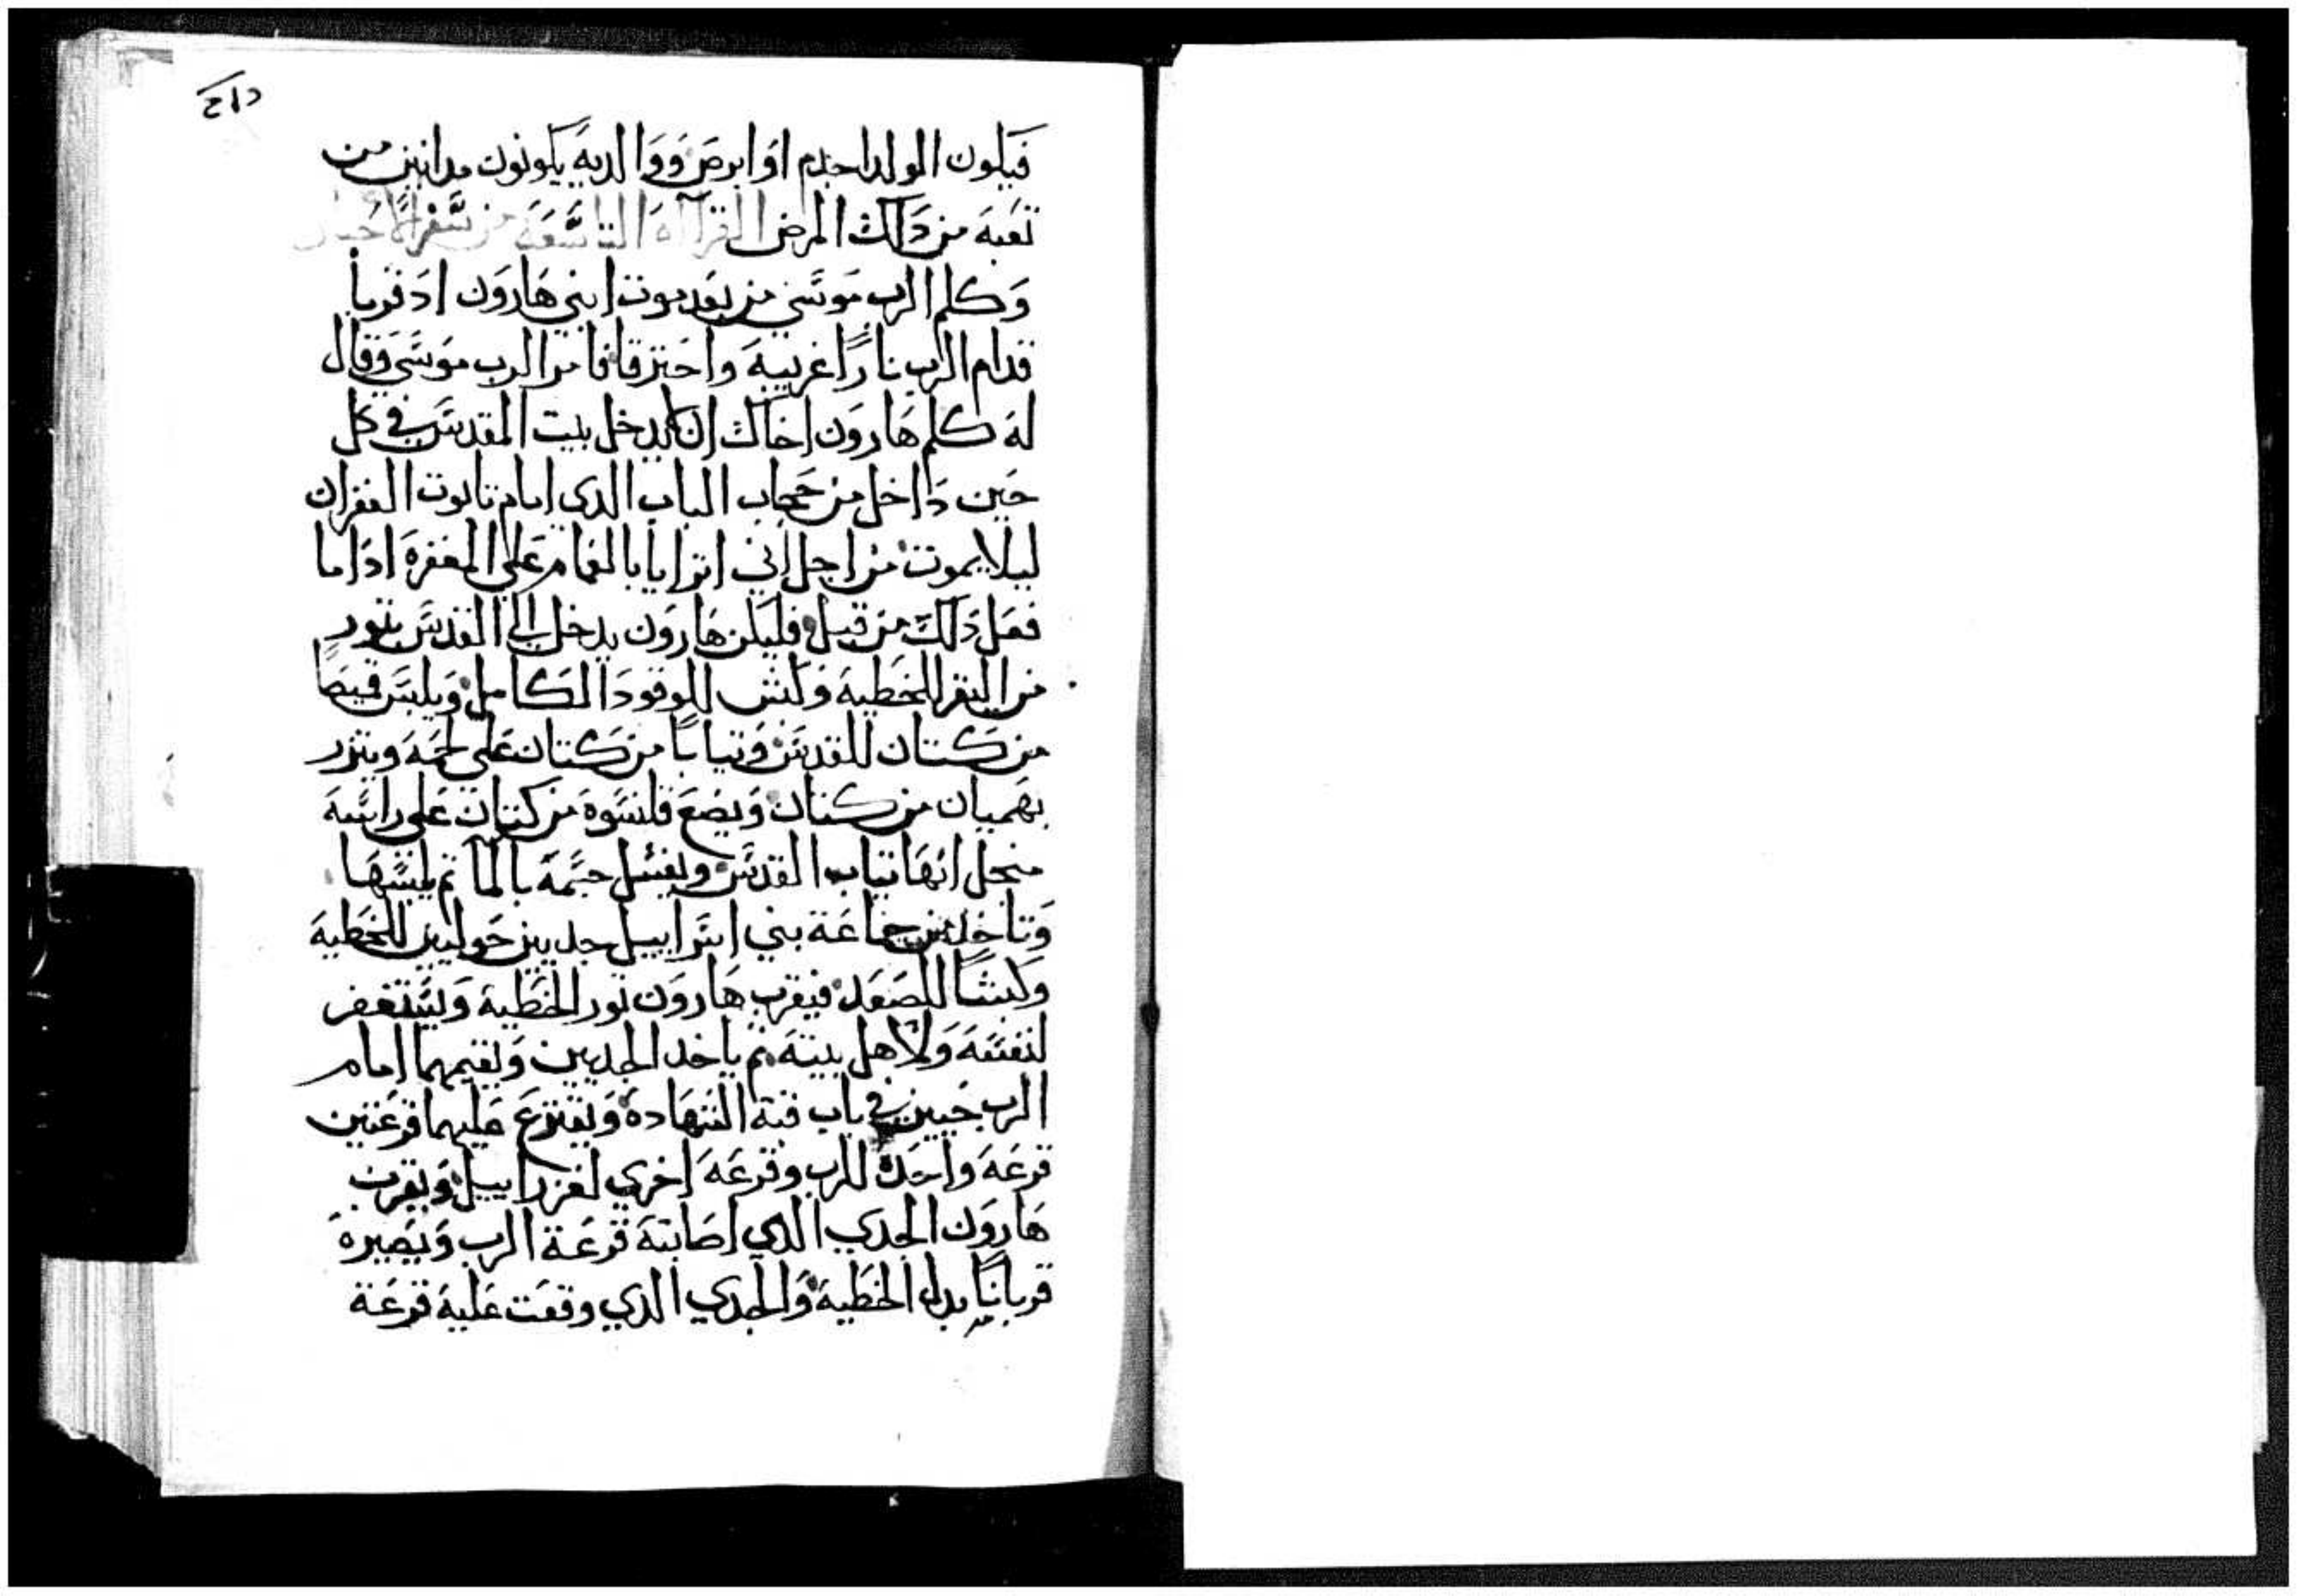 فيكون الولد اجدم او ابرص ووالديه يكونون مدانين من
تعبه من دالك المرض القراآه التاسعه من سفر الاحبار
وكلم الرب موسي من بعد موت ابني هارون اد قربا
قدام الرب نارًا غريبه واحترقا فامر الرب موسي وقال
له كلم هارون اخاك ان لا يدخل بيت المقدس في كل
حين داخل من حجاب الباب الدي امام تابوت الغفران
ليلا يموت من اجل اني اترايا بالغمام علي المغفره اداما
فعل دلك من قبل فليكن هارون يدخل الي القدس بثور
من البقر للخطيه وكبش للوقود الكامل ويلبس قميصًا
من كتان للقدس وثيابًا من كتان علي لحمه ويتزر
بهميان من كتان ويضع قلنسوه من كتان علي راسه
منجل انها ثياب القدس ويغسل جسمه بالما ثم يلبسها
وتاخد من جماعة بني اسراييل جديين حوليين للخطيه
وكبشًا للصعد فيقرب هارون ثور الخطيه ويستغفر
لنفسه ولاهل بيته ثم ياخد الجديين ويقيمهما امام
الرب حيين في باب قبة الشهاده ويقترع عليهما قرعتين
قرعه واحده للرب وقرعه اخري لعزراييل ويقرب
هارون الجدي الدي اصابته قرعة الرب ويصيره
قربانًا بدل الخطيه والجدي الدي وقعت عليه قرعة